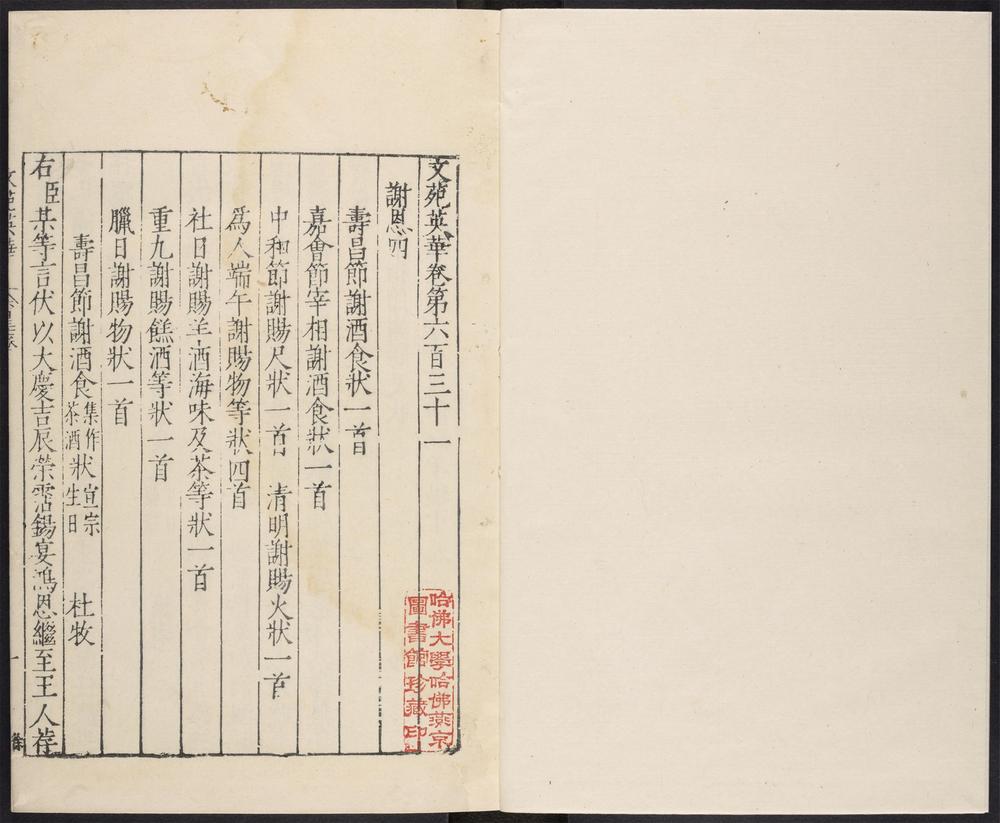 文苑英華卷第六百三十一
謝恩四
壽昌節謝酒食狀一首
嘉會節宰相謝酒食狀一首
中和節謝賜尺狀一首 清明謝賜火狀一首
爲人端午謝賜物等狀四首
社日謝賜羊酒海味及茶等狀一首
重九謝賜餻酒等狀一首
臘日謝賜物狀一首
壽昌節謝酒食集作茶酒狀宣宗生日 杜牧
右臣某等言伏以大慶吉辰榮霑錫宴鴻恩繼至王人荐
哈佛大學哈佛燕京
圖書館珍藏印